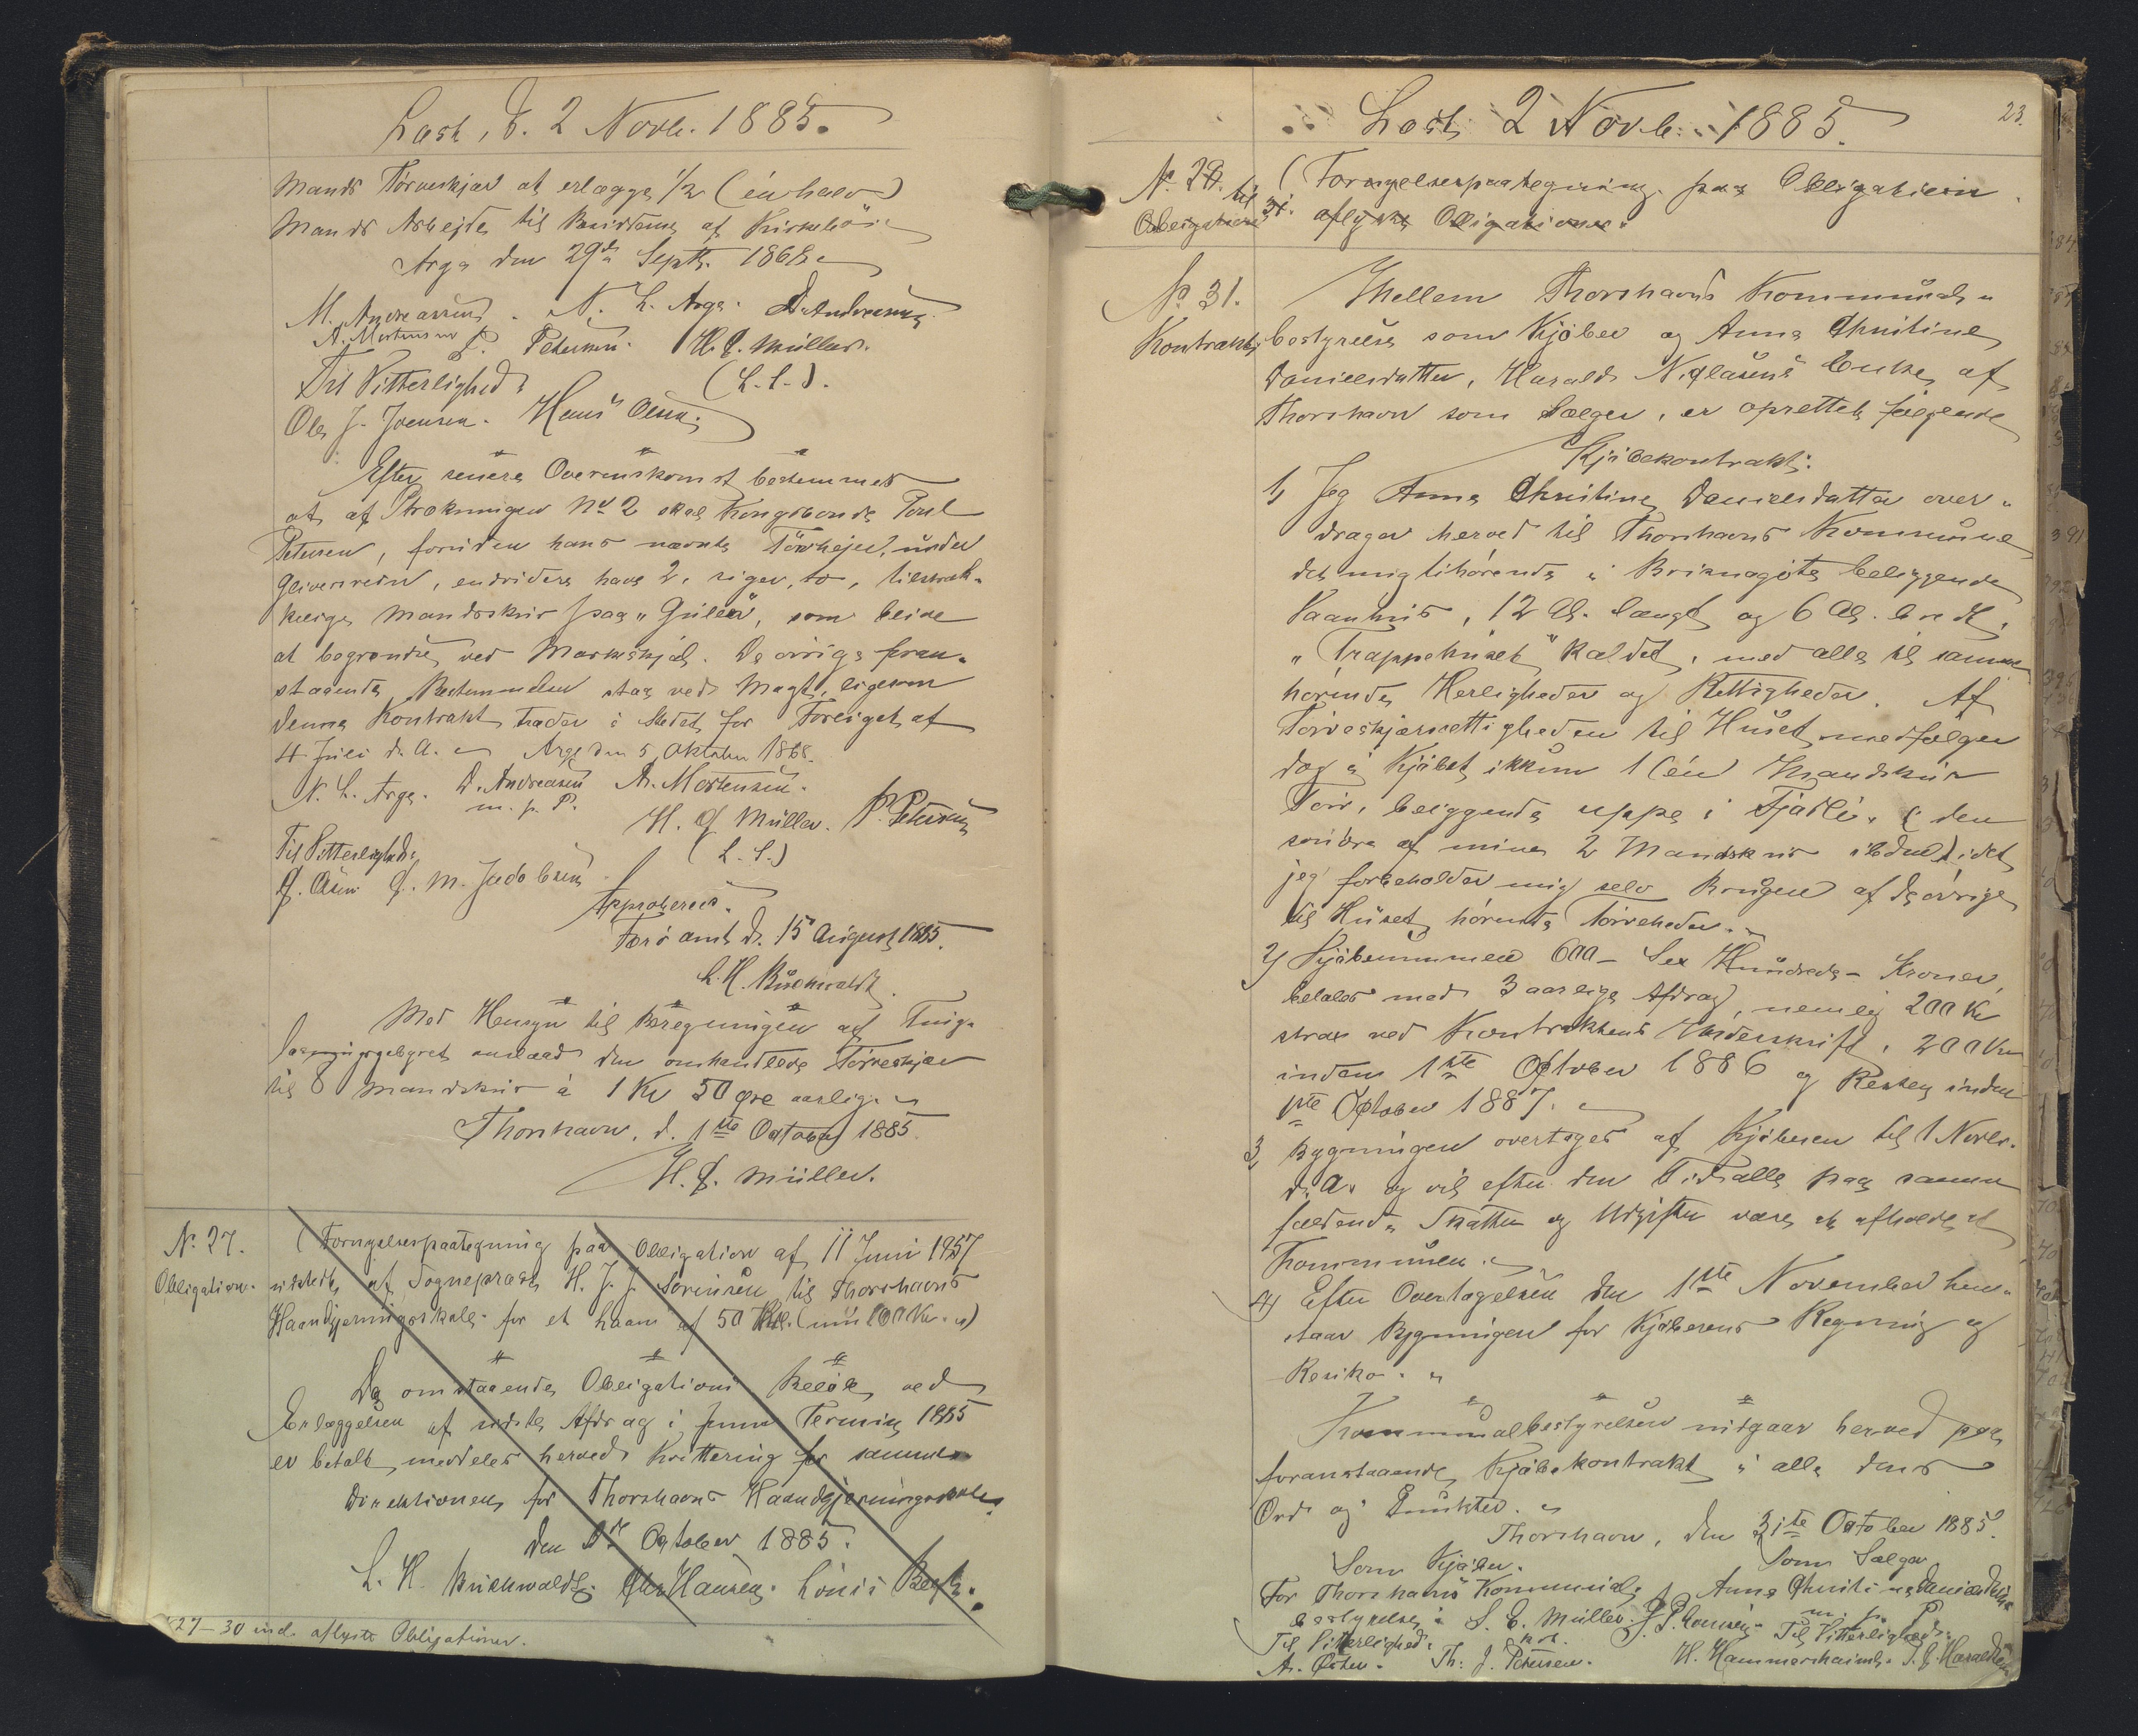 Læst, d. 2 Novb. 1885.
Mands Tørveskjær at erlægge 1/2 (én halv)
Mands Arbejde til af
Arge den 29de Septb. 1868.
M. Andreasen. N. L. Arge. D. Andreasen
A. Mortensen P. Petersen. H. C. Müller.
Til Vitterlighed: (L. S.).
Ole J. Joensen. Hans Olsen.
Efter senere Overenskomst bestemmes
at af Strækningen No 2 skal Kongsbonde Poul
Petersen, foruden hans nævnte Tørvhejer, under
endvidere have 2, siger, to, tilstræk-
kelige Mandsskur paa som blive
at begrændse ved Markeskjæl. De øvrige foran-
staaende Bestemmelser staa ved Magt, ligesom
denne Kontrakt træder i Stedet for Foreliget af
4 Juli d. A. Arge den 5 Oktober 1868.
N. L. Arge. D. Andreasen A. Mortensen.
m. p. P.
H. C. Müller. P. Petersen
Til Vitterlighed: (L. S.)
J. Olsen J. M. Jacobsen
Approberes.
Færø Amt d. 15 August 1885.
L. H. Buchwaldt.
Med Hensyn til Beregningen af Ting-
læsningsgebyret anslaaes den omhandlede Tørveskjær
til 8 Mandskur à 1 Kr 50 Øre aarlig.
Thorshavn, d. 1ste October 1885.
H. C. Müller.
No. 27.
Obligation.
(Fornyelsespaategning paa Obligation af 11 Juni 1857
udstedt af Sognepræst H. J. J. Sørensen til Thorshavns
Haandgjerningsskole for et Laan af 50 Rdl. (nu 100 Kr.)
Da omstaaende Obligations Beløb ved
Erlæggelsen af sidste Afdrag i Juni Termin 1885
er betalt, meddeles herved Kvittering for samme
Direktionen for Thorshavns Haandgjerningsskole
den October 1885.
L. H. Buchwaldt. Hansen. Louis Bergh.
27-30 incl. aflyste Obligationer.
23.
Læst 2 Novb. 1885.
No. 29. til 31.
Obligationer
(Fornyelsespaategning paa Obligation
aflyste Obligationer.
No. 31.
Kontrakt,
Mellem Thorshavns Kommunal-
bestyrelse som Kjøber og Anna Christine
Danielsdatter, Harald Niclasens Enke, af
Thorshavn som Sælger, er oprettet følgende
Kjøbekontrakt:
1, Jeg Anna Christine Danielsdatter over-
drager herved til Thorshavns Kommune
det mig tilhørende i beliggende
Vaanhus, 12 Al. langt og 6 Al. bredt,
"Trappehuset" kaldet, med alle til samme
hørende Herligheder og Rettigheder. Af
Tørveskjærsrettigheden til Huset medfølger
dog i Kjøbet ikkun 1 (én) Mandskur
Torv, beliggende uppe i (den
søndre af mine 2 Mandskur idet
jeg forbeholder mig selv Brugen af de øvrige
til Huset hørende Tørveheder.
2, Kjøbesummen 600 - Sex Hundrede - Kroner,
betales med 3 aarlige Afdrag, nemlig 200 Kr
strax ved Kontraktens Underskrift, 200 Kr
inden 1ste October 1886 og Resten inden
1ste October 1887.
3, Bygningen overtages af Kjøberen til 1 Novbr.
d. A. og vil efter den Tid alle paa samme
faldende Skatter og Udgifter være at afholde af
Kommunen.
4, Efter Overtagelsen den 1ste November hen-
staar Bygningen for Kjøberens Regning og
Resiko.
Kommunalbestyrelsen indgaar herved paa
foranstaaende Kjøbekontrakt i alle dens
Ord og Punkter.
Thorshavn, den 31te October 1885.
Som Kjøber. Som Sælger
For Thorshavns Kommunal- Anna Christine Danielsdatter
bestyrelse: S. E. Müller. J. P. m. p. P.
Til Vitterlighed: Til Vitterlighed:
Th: J. Petersen. H. Hammershaimb.